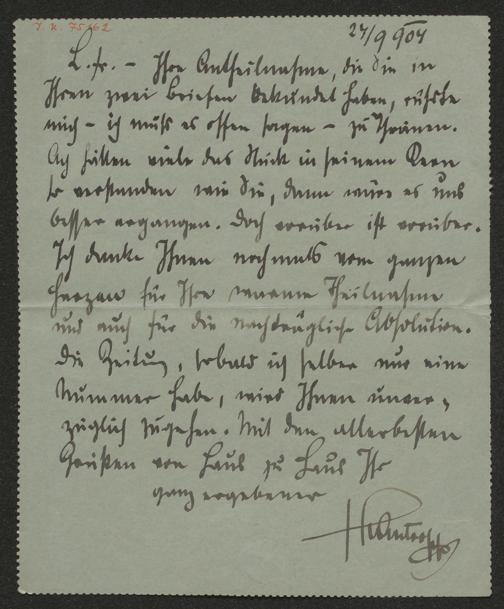 I. N. 75462
27/9 904
L. Fr. – Ihre Antheilnahme, die Sie in
Ihren zwei Briefen bekundet haben, rührte
mich – ich muß es offen sagen – zu Thränen.
Ach hätten viele das Stück in seinem Kern
so verstanden wie Sie, dann wäre es uns
besser ergangen. Doch vorüber ist vorüber.
Ich danke Ihnen nochmals vom ganzen
Herzen für Ihre warme Theilnahme
und auch für die nachträgliche Absolution.
Die Zeitung, sobald ich selber nur eine
Nummer habe, wird Ihnen unver-
züglich zugehen. Mit den allerbesten
Grüßen von Haus zu Haus Ihr
ganz ergebener